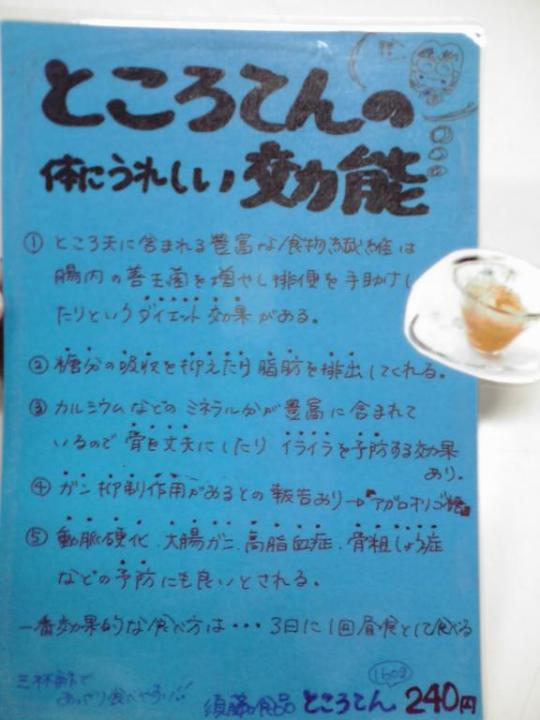 ところてんの
体にうれしい 効能
① ところ天に含まれる豊富な食物繊維は
腸内の善玉菌を増やし排便を手助けし
たりというダイエット効果がある。
② 糖分の吸収を抑えたり脂肪を排出してくれる。
③ カルシウムなどのミネラル分が豊富に含まれて
いるので骨を丈夫にしたりイライラを予防する効果
あり。
④ ガン抑制作用があるとの報告あり→「アガロオリゴ糖」
⑤ 動脈硬化、大腸ガン、高脂血症、骨粗しょう症
などの予防にも良いとされる。
一番効果的な食べ方は・・・3日に1回昼食として食べる
三杯酢で
あっさり食べやすい!!
160g
須藤食品 ところてん 240円